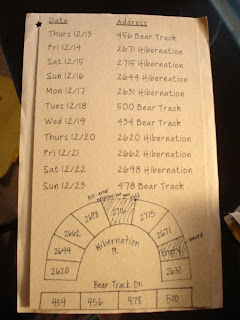 Date Address
Thurs 12/13 456 Bear Track
Fri 12/14 2671 Hibernation
Sat 12/15 2715 Hibernation
Sun 12/16 2644 Hibernation
Mon 12/17 2631 Hibernation
Tues 12/18 500 Bear Track
Wed 12/19 434 Bear Track
Thurs 12/20 2620 Hibernation
Fri 12/21 2662 Hibernation
Sat 12/22 2698 Hibernation
Sun 12/23 478 Bear Track
2698
2715
2662
2671
2644
2620
2631
Hibernation
Pl.
Bear Track Dr.
434 456 478 500